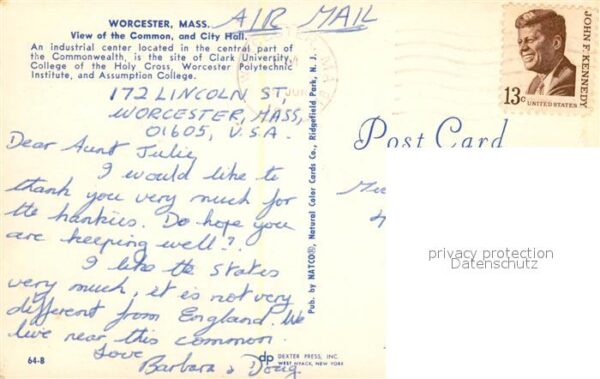 WORCESTER, MASS.
View of the Common, and City Hall.
An industrial center located in the central part of
the Commonwealth, is the site of Clark University,
College of the Holy Cross, Worcester Polytechnic
Institute, and Assumption College.
AIR MAIL
172 LINCOLN ST,
WORCESTER, MASS,
01605, U.S.A.
Dear Aunt Julie,
I would like to
thank you very much for
the hankies. Do hope you
are keeping well?
I like the States
very much, it is not very
different from England. We
live near this common.
Love
Barbara & Doug
64-B
Pub. by NATCO®, Natural Color Cards Co., Ridgefield Park, N. J.
dp DEXTER PRESS, INC.
WEST NYACK, NEW YORK
JOHN F. KENNEDY
13c UNITED STATES
Post Card
privacy protection
Datenschutz